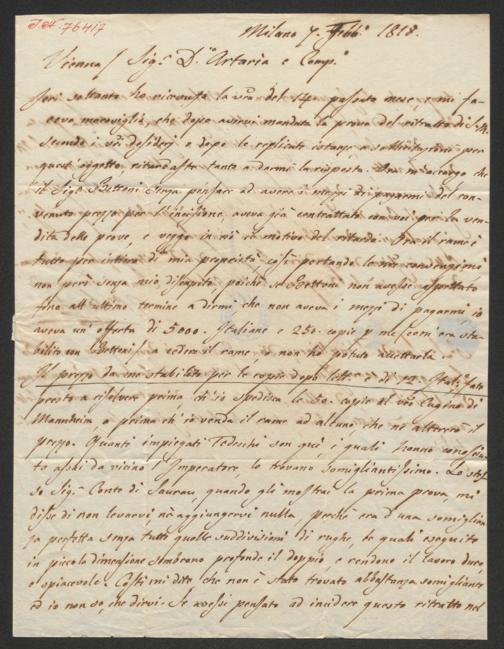 I.N. 76417
Milano 7. Febb.º 1818.
Vienna / Sig.ri D.º Artaria e Comp.º
Jeri soltanto ho ricevuta la vra del 14. passato mese, e mi fa-
cevo maraviglia, che dopo avervi mandata la prova del ritratto di S. M.
secondo i vri desiderj e dopo le replicate istanze e sollecitazioni per
quest'oggetto, ritardaste tanto a darmi la risposta. Ora m'accorgo che
il Sig.r Bettoni senza pensare ad avere i mezzi di pagarmi del con-
venuto prezzo per l'incisione, aveva già contrattato con voi per la ven-
dita delle prove, e veggo in ciò il motivo del ritardo. Ora il rame è
tutto per intiero di mia proprietà, così portando le convenzioni
non però senza mio discapito, poichè se Bettoni non avesse aspettato
fino all'ultimo termine a dirmi che non aveva i mezzi di pagarmi io
aveva un'offerta di 5000. Italiane e 250. copie p. me (com'era sta-
bilito con Bettoni) a cedere il rame, e non ho potuto accettarla.
Il prezzo da me stabilito per le copie dopo lett.e è di 12. Ital.e
presto a risolvere prima ch'io spedisca le 50. copie al vro Cugino di
Mannheim o prima ch'io venda il rame ad alcuno che ne alterrà il
prezzo. Quanti impiegati Tedeschi son quì, i quali hanno conosciu-
to assai da vicino l'Imperatore, lo trovano somigliantissimo. Lo stes-
so Sig.r Conte di Saurau, quando gli mostrai la prima prova mi
disse di non levarvi, nè aggiungervi nulla, perchè era d'una somiglian-
za perfetta senza tutte quelle suddivisioni di rughe, le quali eseguite
in piccola dimensione sembrano profonde il doppio, e rendono il lavoro duro,
e spiacevole. Costì mi dite che non è stato trovato abbastanza somigliante
ed io non so, che dirvi. Se avessi pensato ad incidere questo ritratto nel